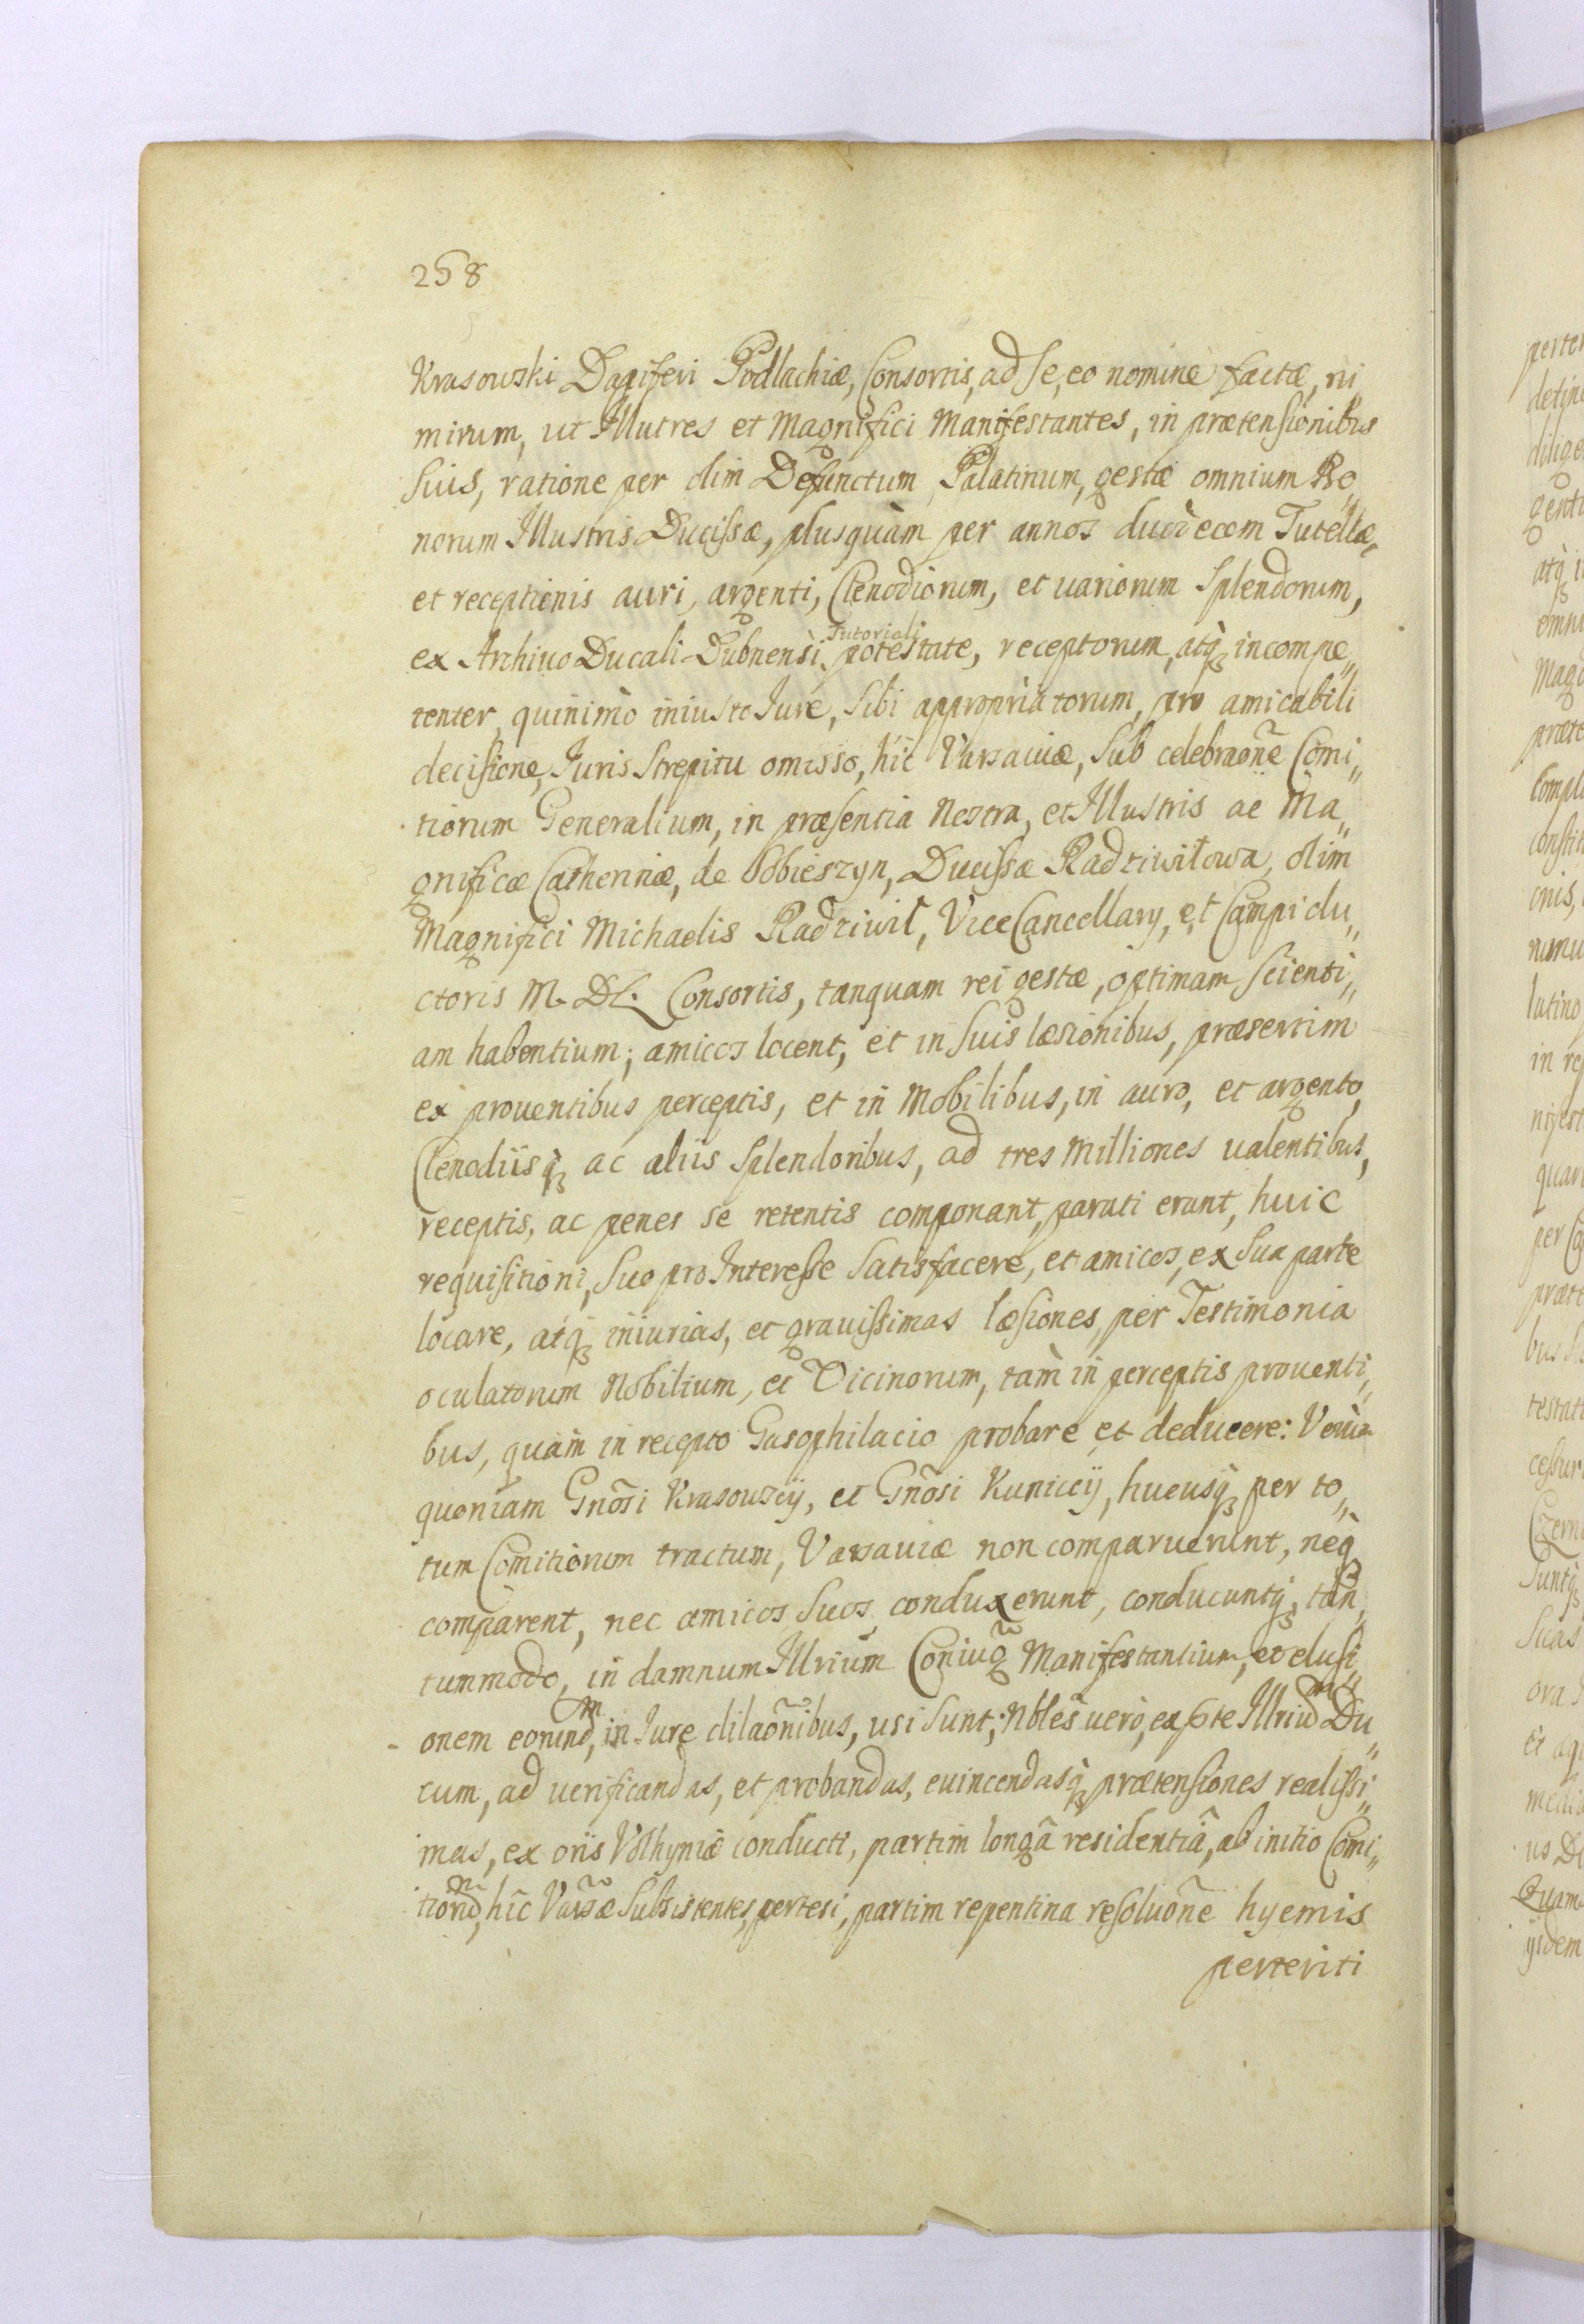 258
Krasowski Dapiferi Podlachiæ, Consortis, ad se, eo nomine factæ, ni„
mirum, ut Illutres et Magnifici Manifestantes, in prætensionibus
suis, ratione per olim Defunctum Palatinum, gestæ omnium Bo„
norum Illustris Ducissæ, plusquàm per annos duodecem Tutellæ,
et receptionis auri, argenti, Clenodiorum, et uariorum Splendorum,
ex Archiuo Ducali Dubnensi, Tutoriali potestate, receptorum, atq̀ꝫ incompe„
tenter, quinimò iniusto Iure, sibi appropriatorum, pro amicabili
decisione, Iuris Strepitu omisso, hìc Varsauiæ, sub celebraõne Comi„
tiorum Generalium, in præsentia Nostra, et Illustris ac Ma„
gnificæ Cathennæ, de Sobieszyn, Ducissæ Radziwiłowa, olim
Magnifici Michaelis Radziwił, ViceCancellary, et Campi du„
ctoris M. D L. Consortis, tanquam rei gestæ, optimam scienti„
am habentium; amicos locent, et in suis læsionibus, præsertim
ex prouentibus perceptis, et in Mobilibus, in auro, et argento,
Clenodiisq̀ꝫ ac aliis Splendoribus, ad tres Milliones ualentibus,
receptis, ac penes se retentis componant, parati erant, huic
requisitioni, suo pro Interesse Satisfacere, et amicos, ex sua parte
locare, atq̀ꝫ iniurias, et grauissimas læsiones, per Testimonia
oculatorum Nobilium, et Vicinorum, tam̀ in perceptis prouenti„
bus, quàm in recepto Gasophilacio probare et deducere: Verùm
quoniam Gnõsi Krasowscÿ, et Gnõsi Kuniccÿ, hucusq̀ꝫ per to„
tum Comitiorum tractum, Varsauiæ non comparuerunt, neq̀ꝫ
comparent, nec amicos suos conduxerunt, conducuntq̀ꝫ, tan„
tummodo, in damnum Illrium Coniug̃ Manifestantium, et elusi„
onem eorund̃m, in Iure dilaõnibus, usi sunt; Nbles uerò, ex pte Illriũ Du„
cum, ad uerificandas, et probandas, euincendasq̀ꝫ prætensiones realissi„
mas, ex oris Volhyniæ conducti, partim longâ residentiâ, ab initio Comi„
tiorũ, hîc Varsæ Subsistentes, pertesi, partim repentina resoluõne hyemis
perteriti